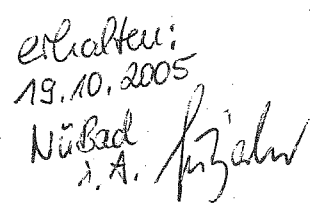 erhalten:
19.10.2005
Nüßad
i.A.